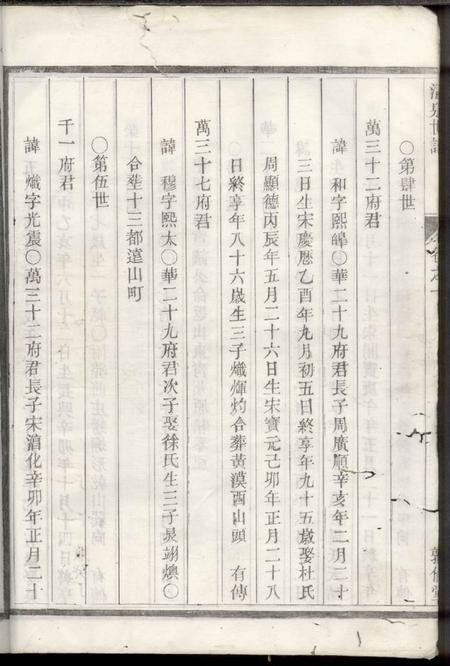 ○第肆世
萬三十二府君
諱　和字熙皞○華二十九府君長子周廣順辛亥年二月二十
三日生宋慶曆乙酉年九月初五日終享年九十五歲娶杜氏
周顯德丙辰年五月二十六日生宋寶元己卯年正月二十八
日終享年八十六歲生三子熾煇灼合葬黃漠酉山頭　有傳
萬三十七府君
諱　穆字熙太○華二十九府君次子娶徐氏生三子炅翊燠○
合塟十三都遠山町
○第伍世
千一府君
諱　熾字光震○萬三十二府君長子宋淯化辛卯年正月二十